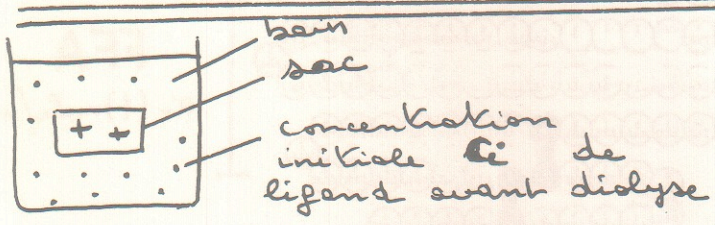 bain
sac
+ +
concentration
initiale Ci de
ligand avant dialyse